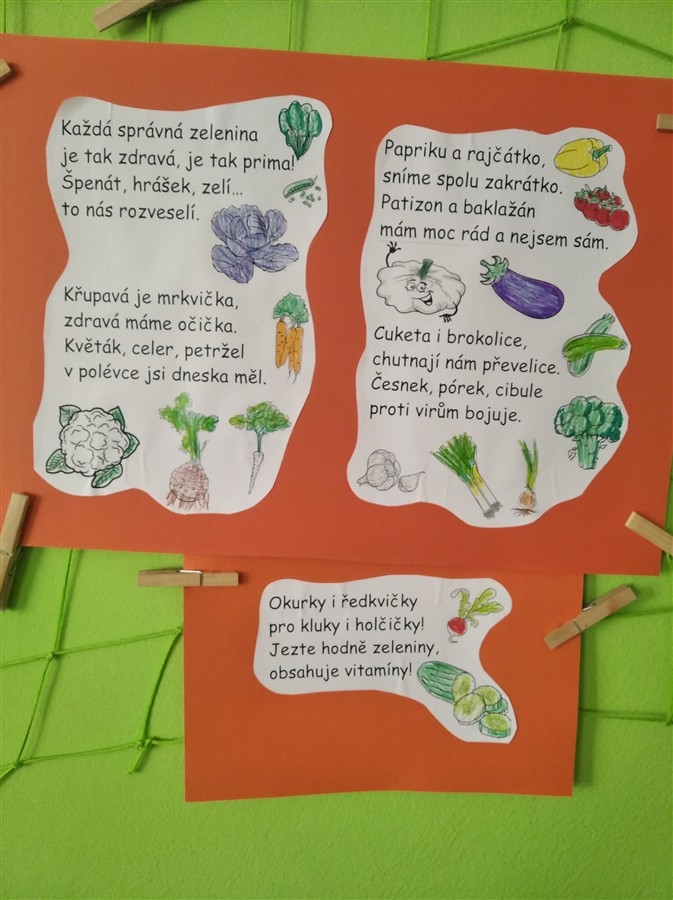 Každá správná zelenina
je tak zdravá, je tak prima!
Špenát, hrášek, zelí...
to nás rozveselí.
Křupavá je mrkvička,
zdravá máme očička.
Květák, celer, petržel
v polévce jsi dneska měl.
Papriku a rajčátko,
sníme spolu zakrátko.
Patizon a baklažán
mám moc rád a nejsem sám.
Cuketa i brokolice,
chutnají nám převelice.
Česnek, pórek, cibule
proti virům bojuje.
Okurky i ředkvičky
pro kluky i holčičky!
Jezte hodně zeleniny,
obsahuje vitamíny!